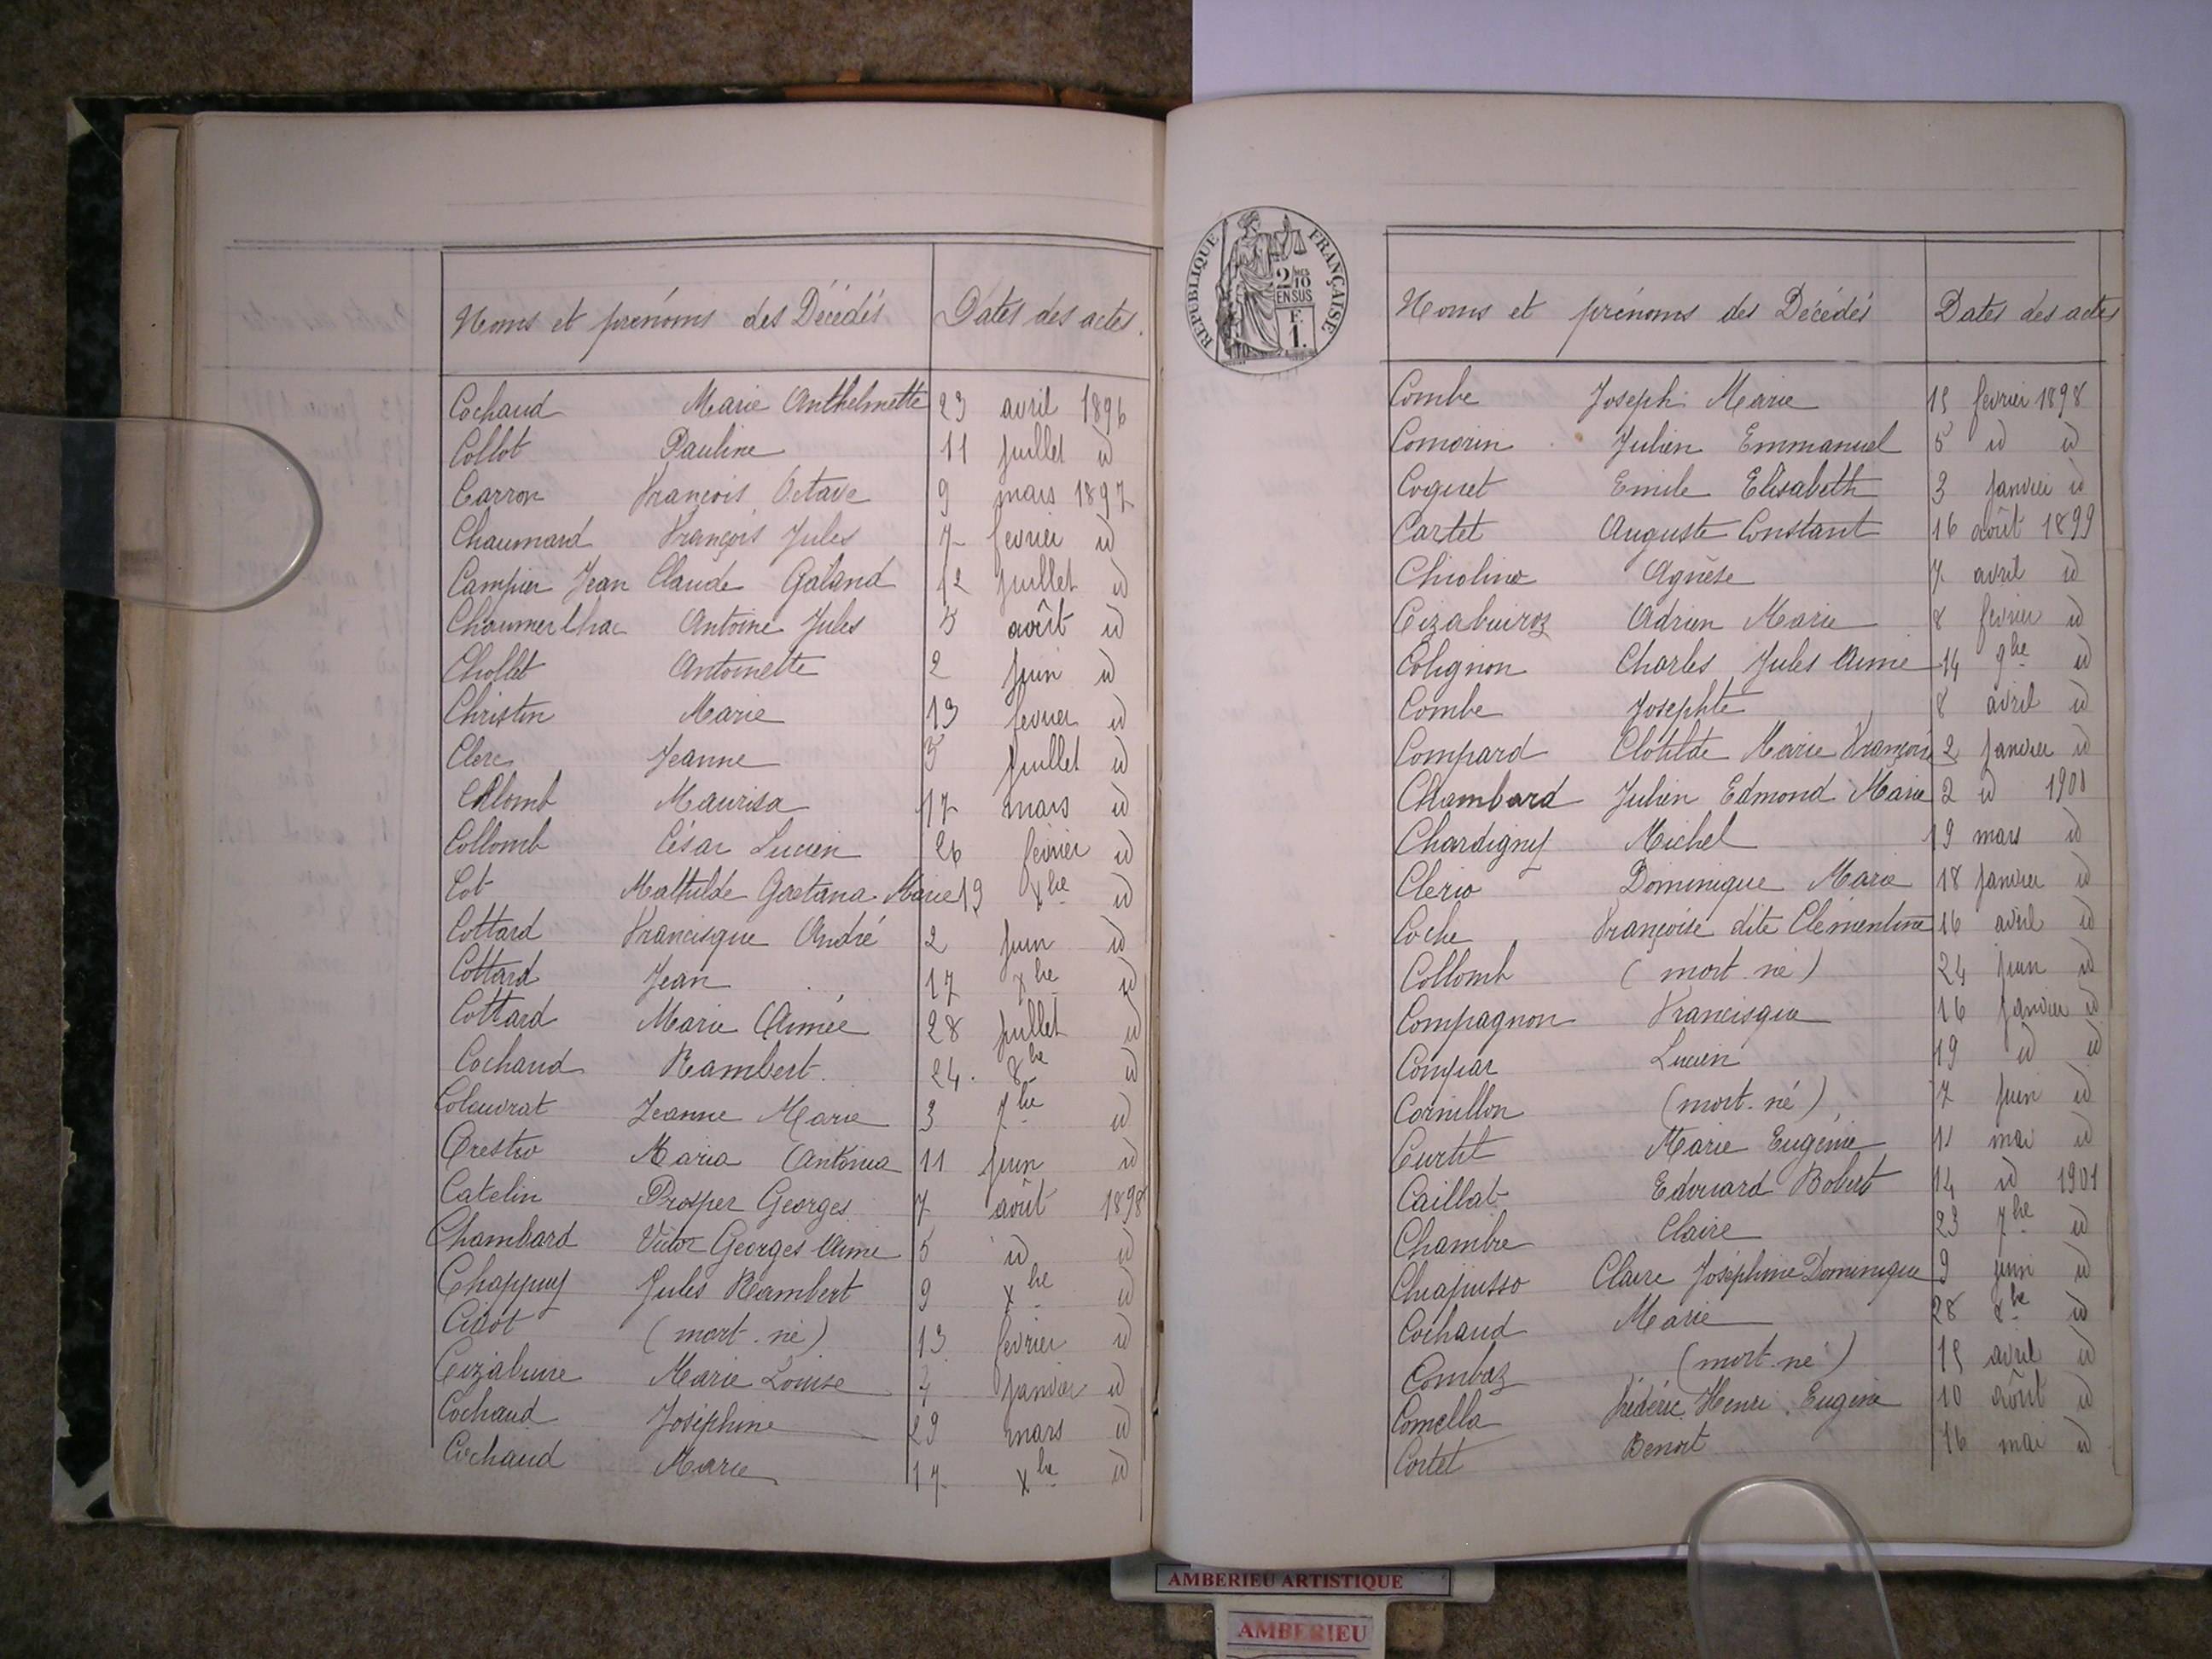 Noms et prénoms des Décédés Dates des actes.
Cochaud Marie Anthelmette 23 avril 1896
Collot Pauline 11 juillet id
Carron François Octave 9 mars 1897
Chaumard François Jules 7 fevrier id
Campier Jean Claude Galand 12 juillet id
Chaumerlhac Antoine Jules 5 août id
Chollet Antoinette 2 juin id
Christin Marie 13 fevrier id
Clerc Jeanne 5 juillet id
Collomb Maurisa 17 mars id
Collomb César Lucien 26 février id
Cot Mathilde Gaetana Marie 19 xbe id
Cottard Francisque André 2 juin id
Cottard Jean 17 xbe id
Cottard Marie Aimée 28 juillet id
Cochaud Rambert 24 8be id
Coleuvrat Jeanne Marie 3 7be id
Crestio Maria Antonia 11 juin id
Catelin Prosper Georges 7 août 1898
Chambard Victor Georges Aimé 5 id id
Chappuy Jules Rambert 9 xbe id
(mort-né) 13 fevrier id
Cizabuire Marie Louise janvier id
Cochaud Joséphine 29 mars id
Cochaud Marie 17 xbe id
RÉPUBLIQUE FRANÇAISE
2/10 MES
EN SUS
F.
1.
Noms et prénoms des Décédés Dates des actes
Combe Joseph Marie 15 fevrier 1898
Comorin Julien Emmanuel 5 id id
Coguet Emile Elisabeth 3 janvier id
Cartet Auguste Constant 16 août 1899
Chiolino Agnèse 7 avril id
Cizabuiroz Adrien Marie 8 février id
Colignon Charles Jules Aimé 14 9be id
Combe Josephte 8 avril id
Compard Clotilde Marie François 2 janvier id
Chambard Julien Edmond Marie 2 id 1900
Chardigny Michel 19 mars id
Clerio Dominique Marie 18 janvier id
Coche Françoise dite Clémentine 16 avril id
Collomb (mort-né) 24 juin id
Compagnon Francisque 16 janvier id
Compar Lucien 19 id id
Cornillon (mort-né) 7 juin id
Curtet Marie Eugénie 11 mai id
Caillat Edouard Robert 14 id 1901
Chambre Claire 23 7be id
Chiapusso Claire Joséphine Dominique 9 juin id
Cochaud Marie 28 8be id
Combaz (mort-né) 15 avril id
Comella Frédéric Henri Eugène 10 août id
Cortet Benoit 16 mai id
AMBERIEU ARTISTIQUE
AMBERIEU